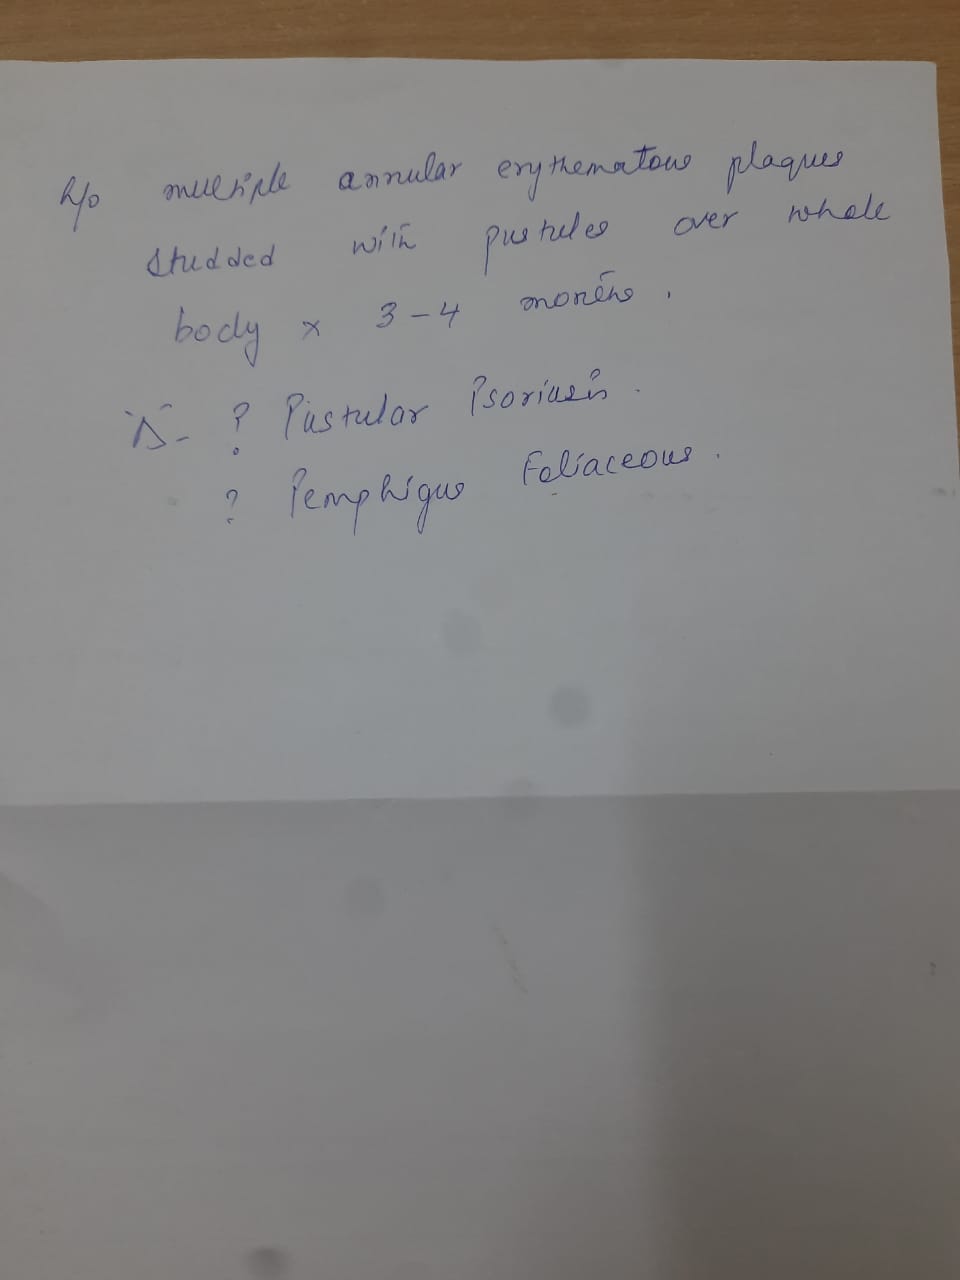 h/o multiple annular erythematous plaques
studded with pustules over whole
body x 3-4 months.
Δ- ? Pustular Psoriasis.
? Pemphigus Foliaceous.